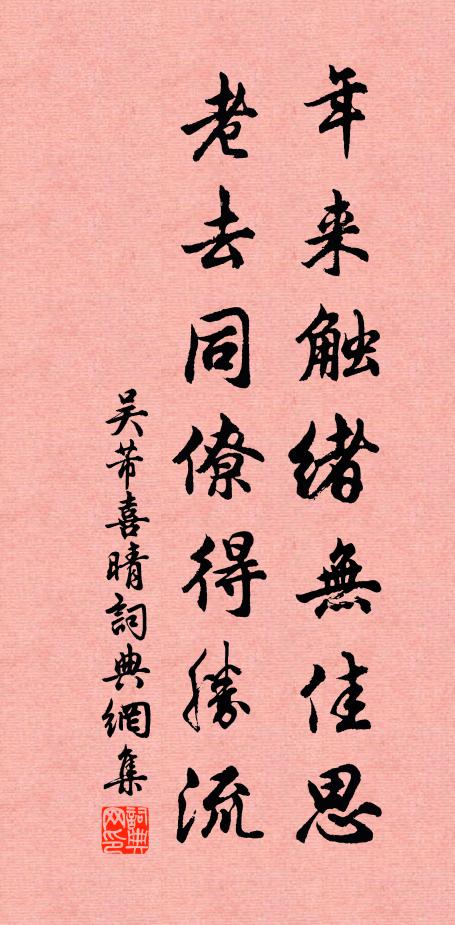 年来触緒無佳思
老去同僚得勝流
吴芾喜晴詞典網集
詞典网印